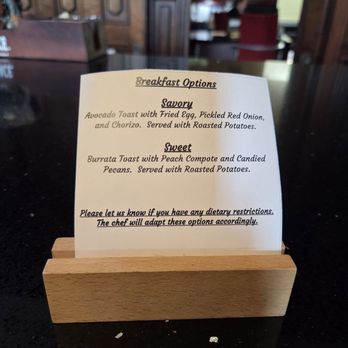 Breakfast Options
Savory
Avocado Toast with Fried Egg, Pickled Red Onion,
and Chorizo. Served with Roasted Potatoes.
Sweet
Burrata Toast with Peach Compote and Candied
Pecans. Served with Roasted Potatoes.
Please let us know if you have any dietary restrictions.
The chef will adapt these options accordingly.